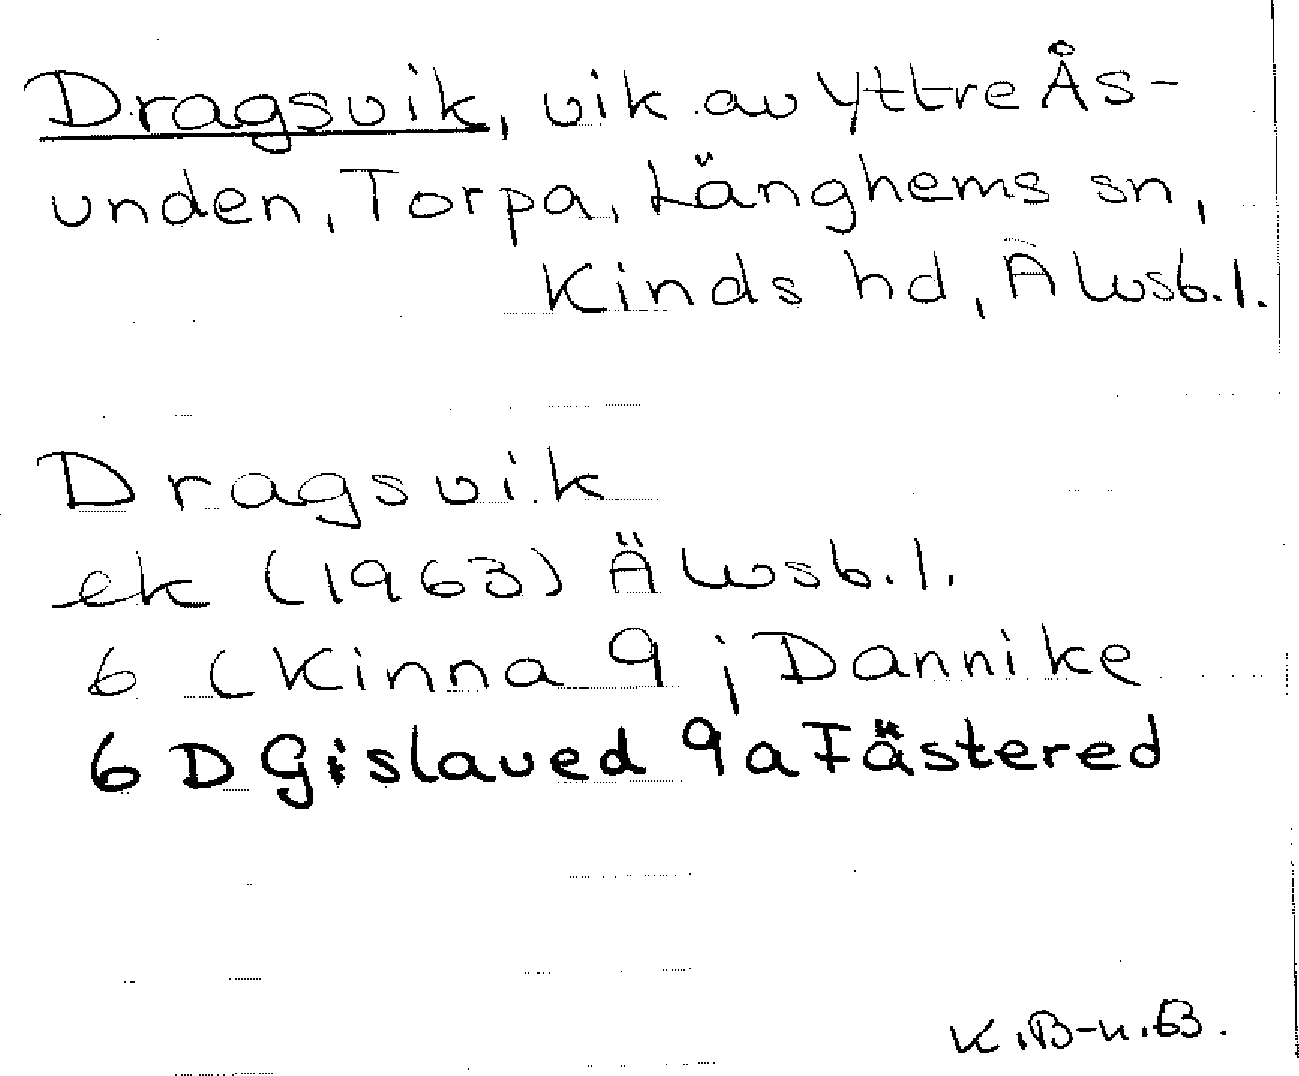 Dragsvik, vik av Yttre Ås-
unden, Torpa, Länghems sn,
Kinds hd, Älvsb.l.
Dragsvik
ek (1963) Älvsb.l.
6 C Kinna 9 j Dannike
6 D Gislaved 9 a Fästered
K.B-n.B.